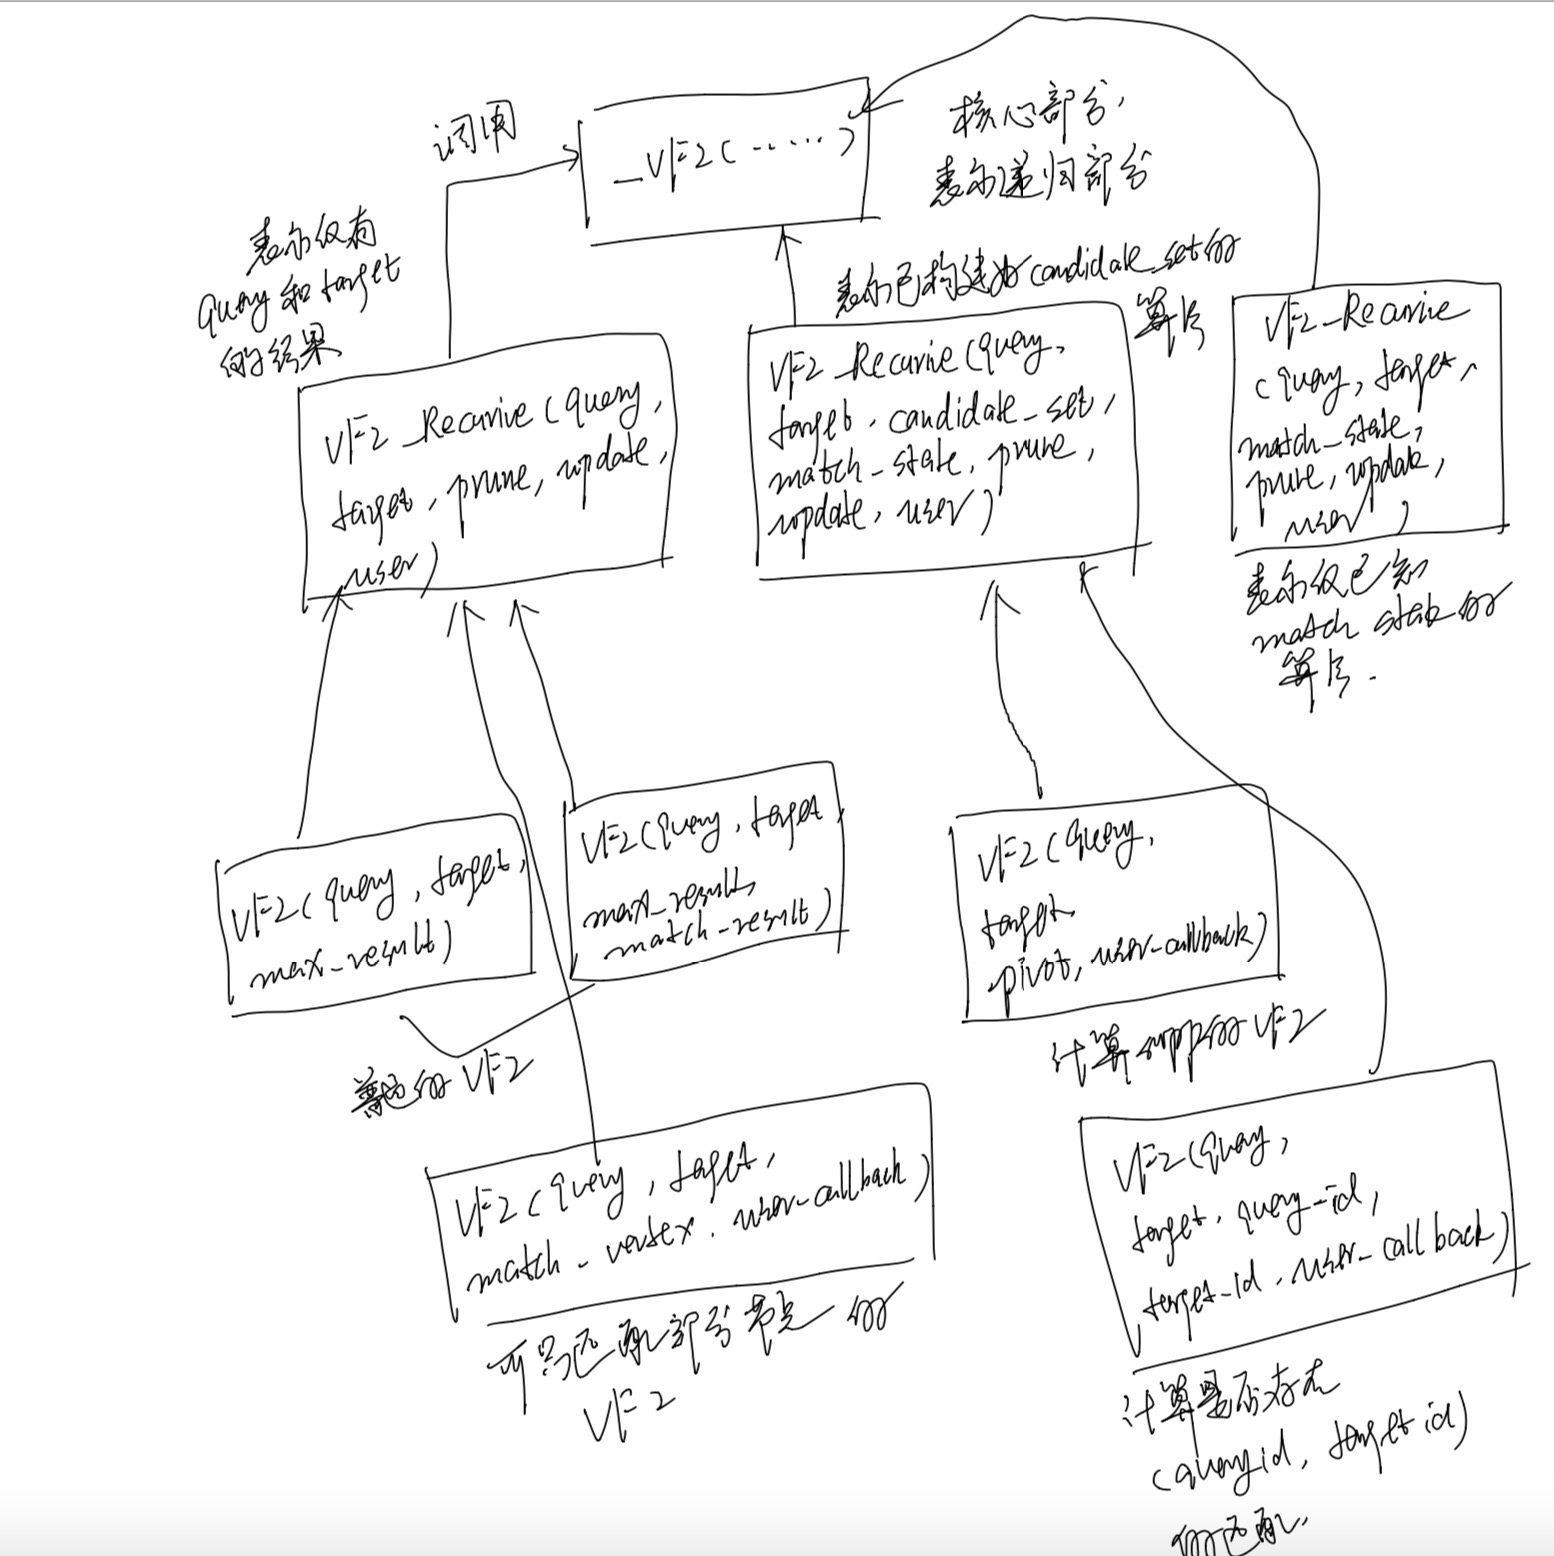 调用
_VF2(······)
核心部分,
表示递归部分
表示仅有
query 和 target
的结果
表示已构建好candidate_set的
算法
VF2_Recurive(query,
target, prune, update,
user)
VF2_Recurive(query,
target, candidate_set,
match_state, prune,
update, user)
VF2_Recurive
(query, target,
match_state,
prune, update,
user)
表示仅已知
match state的
算法.
VF2(query, target,
max_result)
VF2(query, target
max_result,
match-result)
普通的VF2
VF2(query,
target,
pivot, user-callback)
计算supp的VF2
VF2(query, target,
match-vertex, user-callback)
可只匹配部分节点的
VF2
VF2(query,
target, query-id,
target-id, user-callback)
计算是否存在
(query id, target id)
的匹配.